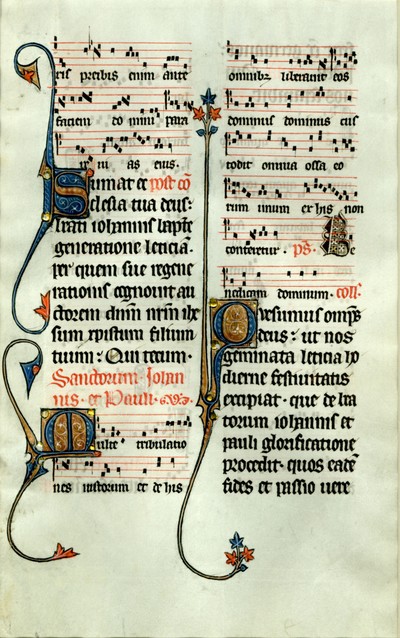 ris precibus enim ante
faciem do mini para
re ui as eius.
Sumat et post cō
clesia tua deus:
brati iohannis bapte
generatione leticiā.
per quem sue regene
rationis cognouit au
ctorem dnm nrm ihe
sum xpistum filium
tuum: Qui tecum.
Sanctorum Iohan
nis et Pauli.
Multe tribulatio
nes iustorum et de his
omnibz liberauit eos
dominus dominus cus
todit omnia ossa eo
rum unum ex his non
conteretur. ps. Be
nedicam dominum. coll.
Quesumus omps
deus: ut nos
geminata leticia ho
dierne festiuitatis
excipiat que de bea
torum iohannis et
pauli glorificatione
procedit quos eadē
fides et passio uere